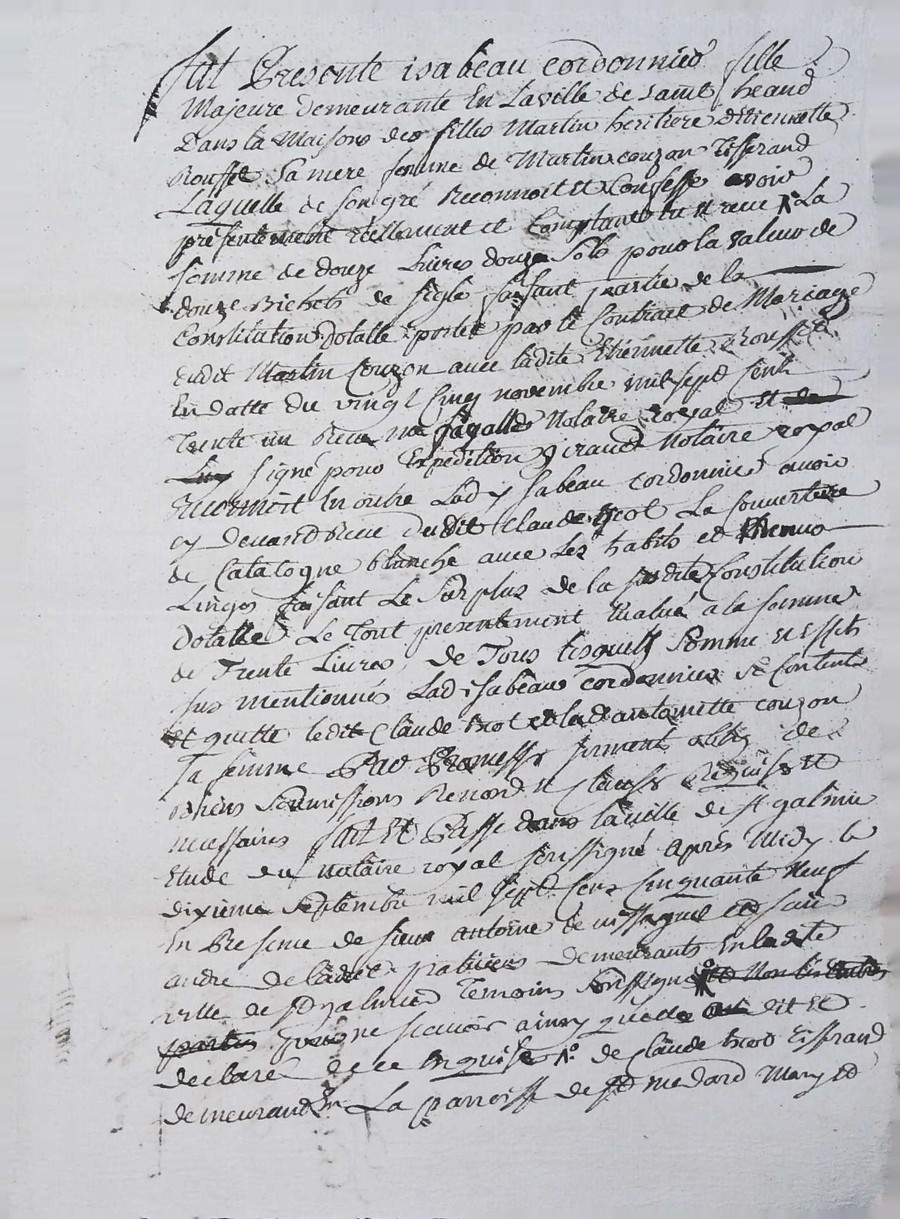 fut Presente isabeau cordonnier fille
Majeure demeurante En Laville de saint heand
Dans la Maison des filles Martin heritiere détiennette
Rousset Sa mere femme de Martin couzon Tisserand
Laquelle de son gré Reconnoit et Confesse avoir
présentement réellement et Comptant reçu La
somme de douze Livres douze Sols pour la valeur de
douze Bichets de seigle faisant partie de la
Constitution dotalle portée par le Contrat de Mariage
dudit Martin Couzon avec ladite Etiennette Rousset
En datte du vingt Cinq novembre mil sept Cent
Trente un Recu Notaire royal et
signé pour Expedition Notaire royal
Reconnoit En outre Lad ysabeau cordonnier avoir
cy devant Recu dudit Claude La Couverture
de Catalogne blanche avec Les habits et Menus
Linges faisant Le Surplus de la susdite Constitution
Dotalle Le Tout presentement Evalué a la somme
de Trente Livres, de Tous lesquels Somme et Effets
sus mentionnés Lad isabeau cordonnier se Contente
Et quitte ledit Claude et lad antoinette couzon
Sa femme Par Promesse serment oblig de
Biens Soumissions Renond et Clauses Requises et
necessaires fait Et Passé dans laville de st galmier
Etude du notaire royal soussigné après Midy le
dixieme Septembre mil Sept Cens Cinquante Neuf
En Presence de sieur antoine et sieur
andre praticiens demeurants En ladite
ville de st galmier Temoins Soussignés
ne scavoir ainsy quelle a dit et
declaré de ce Enquise de Claude Tisserand
demeurant En La Parroisse de st medard Mary et